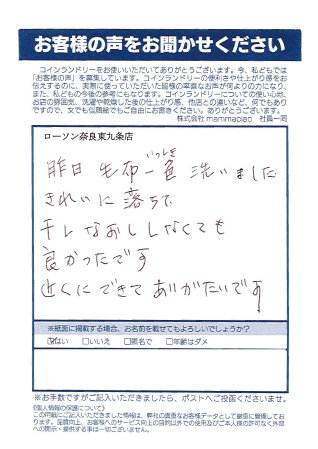 お客様の声をお聞かせください
コインランドリーをお使いいただいてありがとうございます。今、私どもでは
「お客様の声」を募集しています。コインランドリーの便利さや仕上がり感をお
伝えするのに、実際に使っていただいた皆様の率直なお声が何よりの力になり、
また、私どもの今後の参考にもなります。コインランドリーについての使い心地、
お店の雰囲気、洗濯や乾燥した後の仕上がり感、他店との違いなど、何でもあり
ですので、文でも似顔絵でもご自由にお書きください。ありがとうございます。
株式会社 mammaciao 社員一同
ローソン奈良東九条店
昨日 毛布一色 洗いました
いっしき
きれいに落ちて
干しなおししなくても
良かったです
近くにできて ありがたいです
※紙面に掲載する場合、お名前を載せてもよろしいでしょうか?
☑はい □いいえ □匿名で □年齢はダメ
※お手数ですがご記入いただきましたら、ポストへご投函くださいませ。
《個人情報の保護について》
この用紙にご記入いただきました情報は、弊社の貴重なお客様データとして厳重に管理してお
ります。品質向上、お客様へのサービス向上の目的以外での使用及びご本人様の許可なく外部
への開示・提供する事は一切ございません。